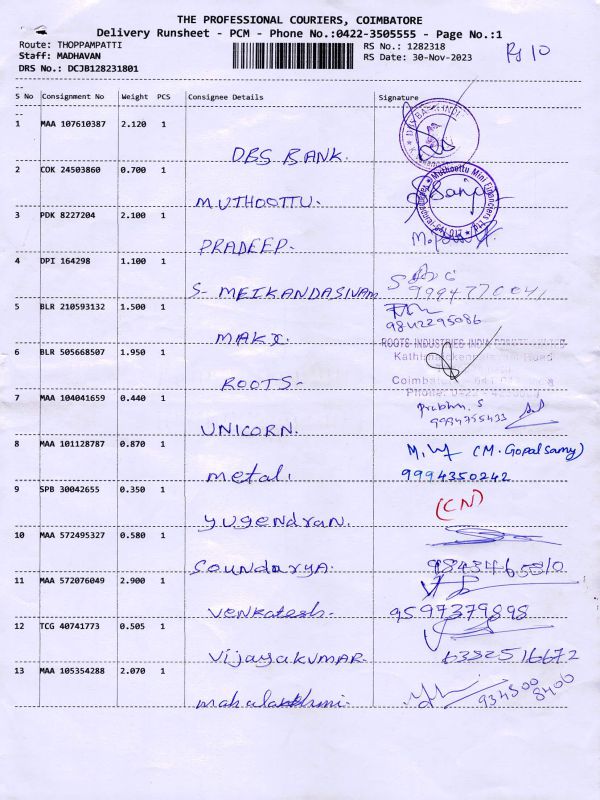 THE PROFESSIONAL COURIERS, COIMBATORE
Delivery Runsheet - PCM - Phone No.:0422-3505555 - Page No.:1
Route: THOPPAMPATTI RS No.: 1282318
Staff: MADHAVAN RS Date: 30-Nov-2023
DRS No.: DCJB128231801
S No Consignment No Weight PCS Consignee Details Signature
1 MAA 107610387 2.120 1
DBS BANK.
2 COK 24503860 0.700 1
MUTHOOTTU.
3 PDK 8227204 2.100 1
PRADEEP.
4 DPI 164298 1.100 1
S- MEIKANDASIVAM
5 BLR 210593132 1.500 1
9842295086
MAKX.
6 BLR 505668507 1.950 1
ROOTS INDUSTRIES INDIA
ROOTS-
Coimbatore
7 MAA 104041659 0.440 1
Prabhu. S
9994755433
UNICORN.
8 MAA 101128787 0.870 1
(M. Gopalsamy)
metal. 9994350242
9 SPB 30042655 0.350 1
(CN)
yugendran.
10 MAA 572495327 0.580 1
Soundarya.
11 MAA 572076049 2.900 1
Venkatesh. 9597379898
12 TCG 40741773 0.505 1
Vijayakumar. 6382516672
13 MAA 105354288 2.070 1
mahalakshmi.